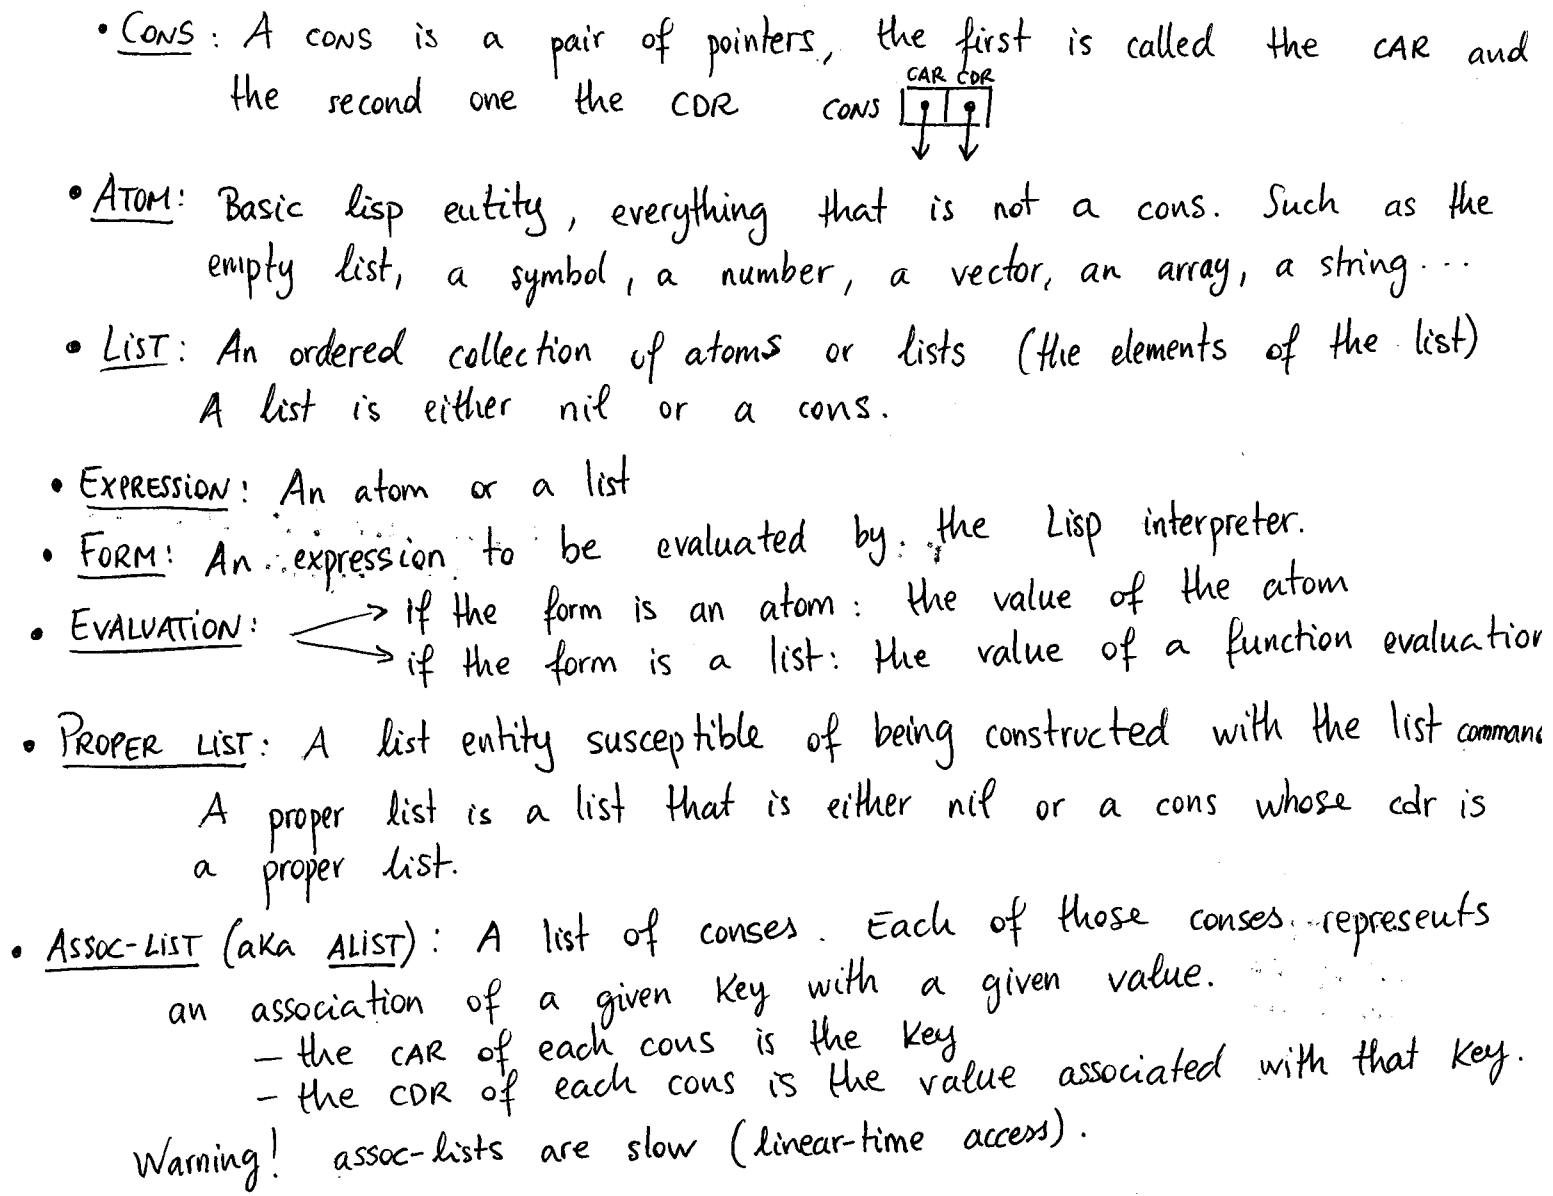 • CONS: A CONS is a pair of pointers, the first is called the CAR and
the second one the CDR CONS CAR CDR
• ATOM: Basic lisp entity, everything that is not a cons. Such as the
empty list, a symbol, a number, a vector, an array, a string...
• LIST: An ordered collection of atoms or lists (the elements of the list)
A list is either nil or a cons.
• EXPRESSION: An atom or a list
• FORM: An expression to be evaluated by the Lisp interpreter.
• EVALUATION: → if the form is an atom: the value of the atom
→ if the form is a list: the value of a function evaluation
• PROPER LIST: A list entity susceptible of being constructed with the list command
A proper list is a list that is either nil or a cons whose cdr is
a proper list.
• ASSOC-LIST (aka ALIST): A list of conses. Each of those conses represents
an association of a given key with a given value.
– the CAR of each cons is the key
– the CDR of each cons is the value associated with that key.
Warning! assoc-lists are slow (linear-time access).